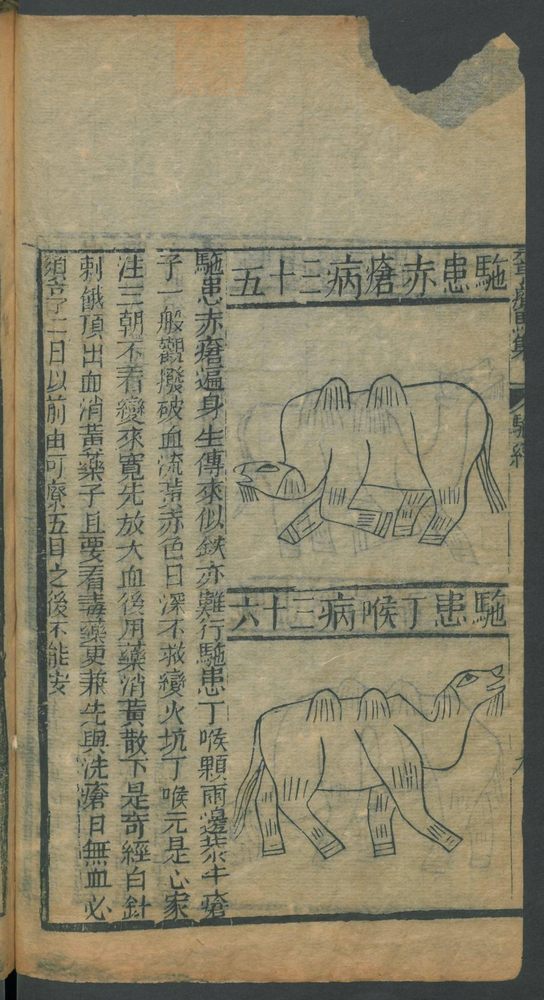 駞患赤瘡病三十五
駞患丁喉病三十六
駞患赤瘡遍身生傳來似鉄亦難行駞患丁喉顆兩邊紫牛瘡
子一般觀撥破血流黃赤色日深不救變火坑丁喉元是心家
注三朝不看變來寬先放大血後用藥消黃散下是奇經白針
刺餓頂出血消黃藥子且要看毒藥更兼先與洗瘡日無血必
須二日以前由可療五日之後不能安
駞經
九